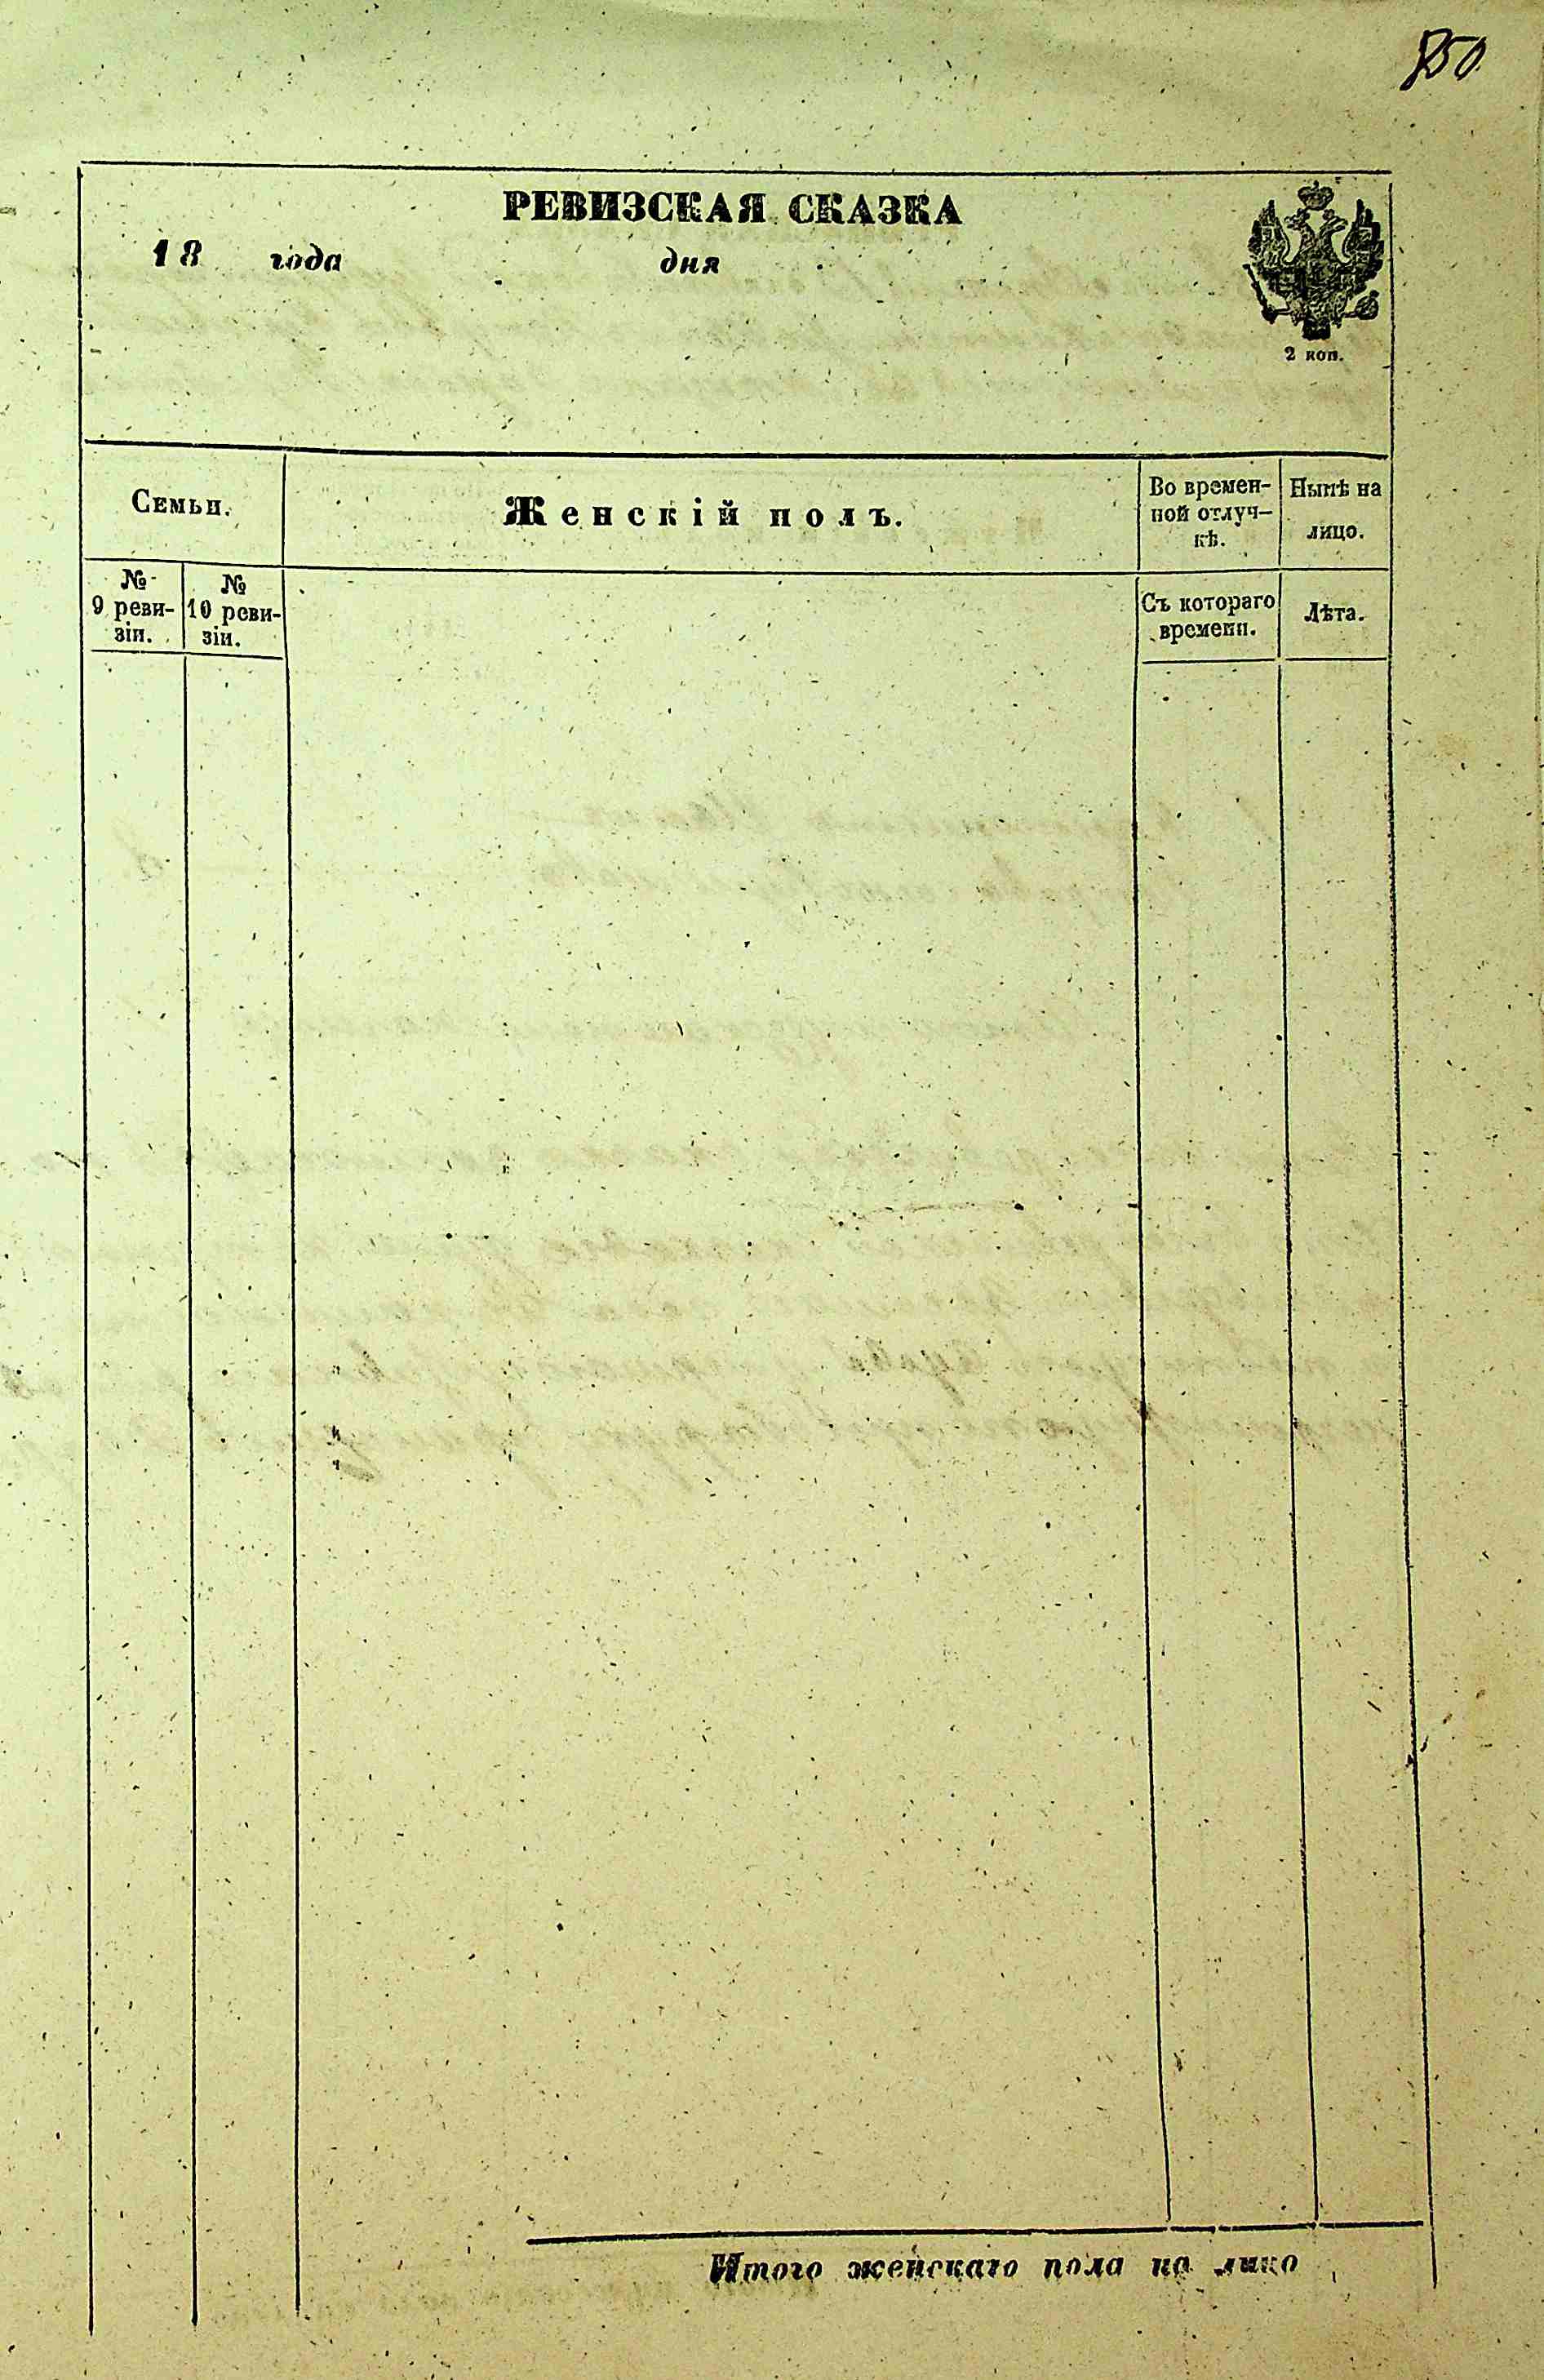 850
РЕВИЗСКАЯ СКАЗКА
18 года дня
2 коп.
Семьи.
Женскій полъ.
Во времен-
ной отлуч-
кѣ.
Нынѣ на
лицо.
№
9 реви-
зіи.
№
10 реви-
зіи.
Съ котораго
времени.
Лѣта.
Итого женскаго пола на лицо